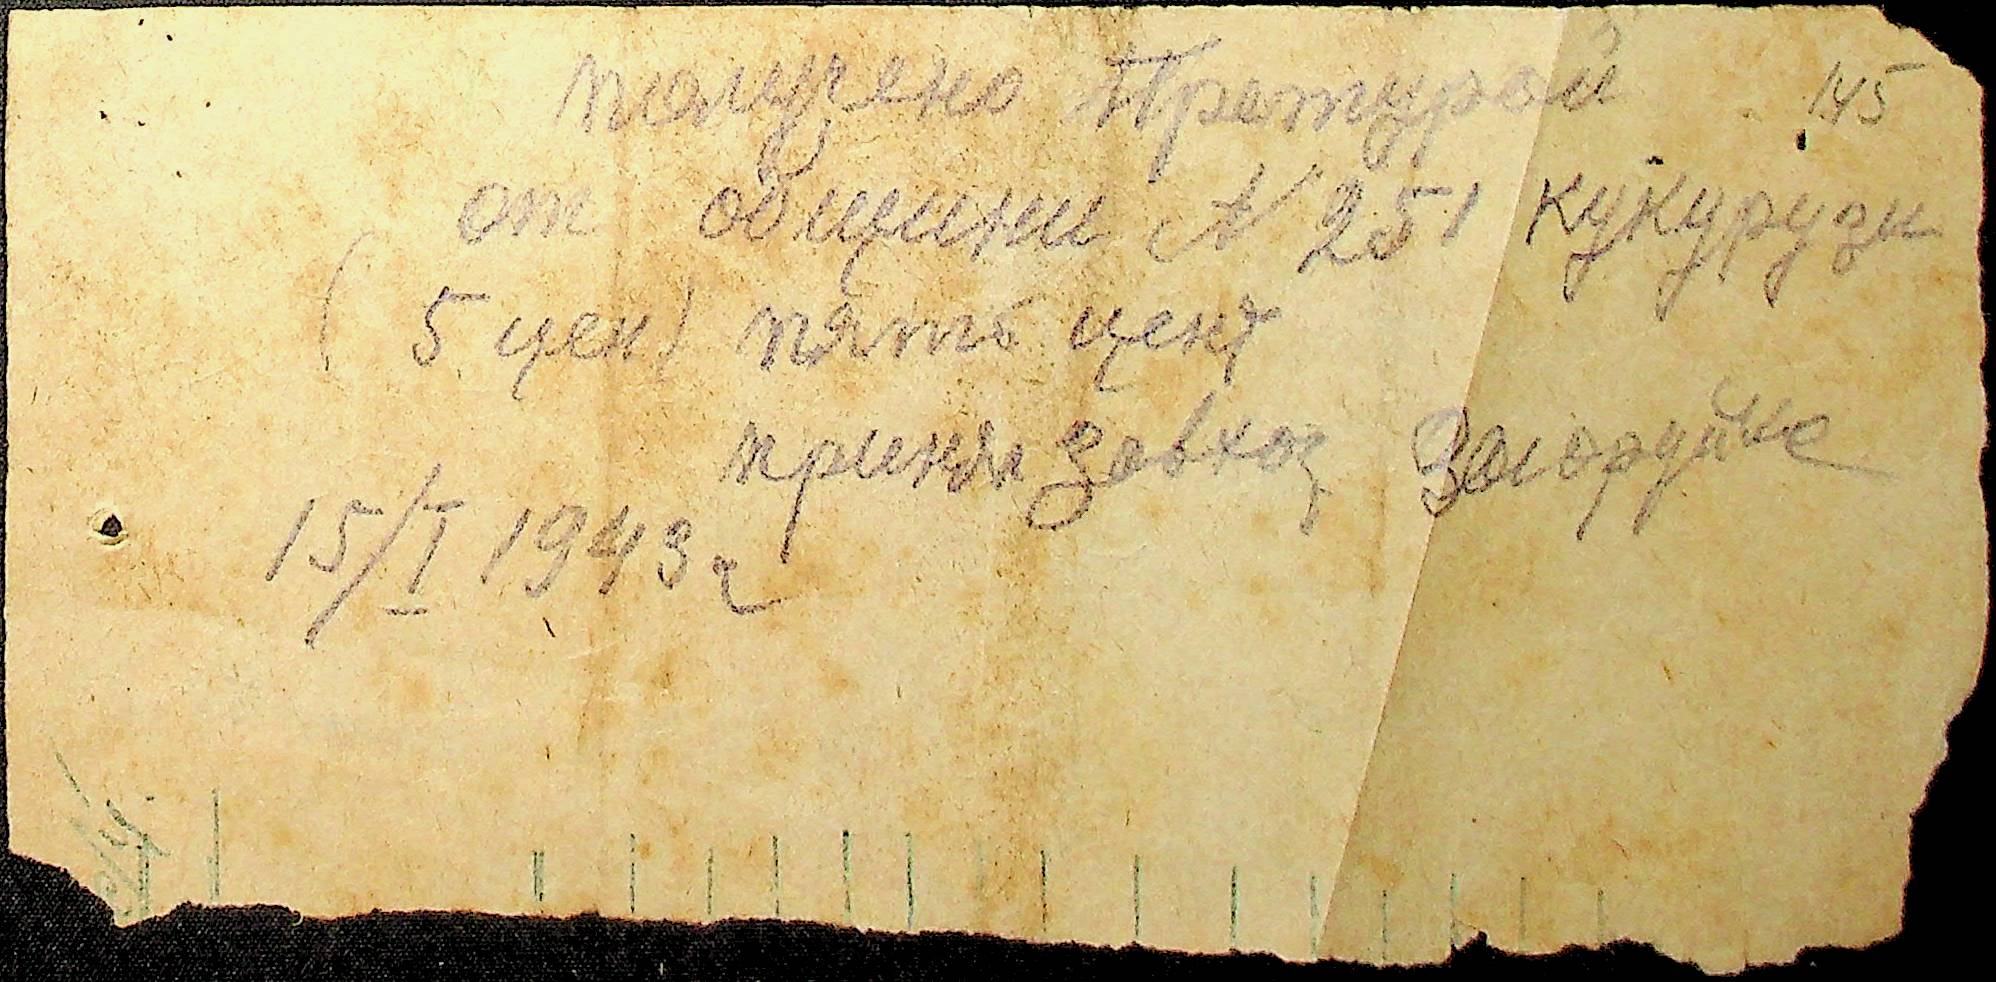 145
получено Претурой
от общини № 251 кукурузи
( 5 цен) пять цент
принял завхоз Загоруйко
15/I 1943 г